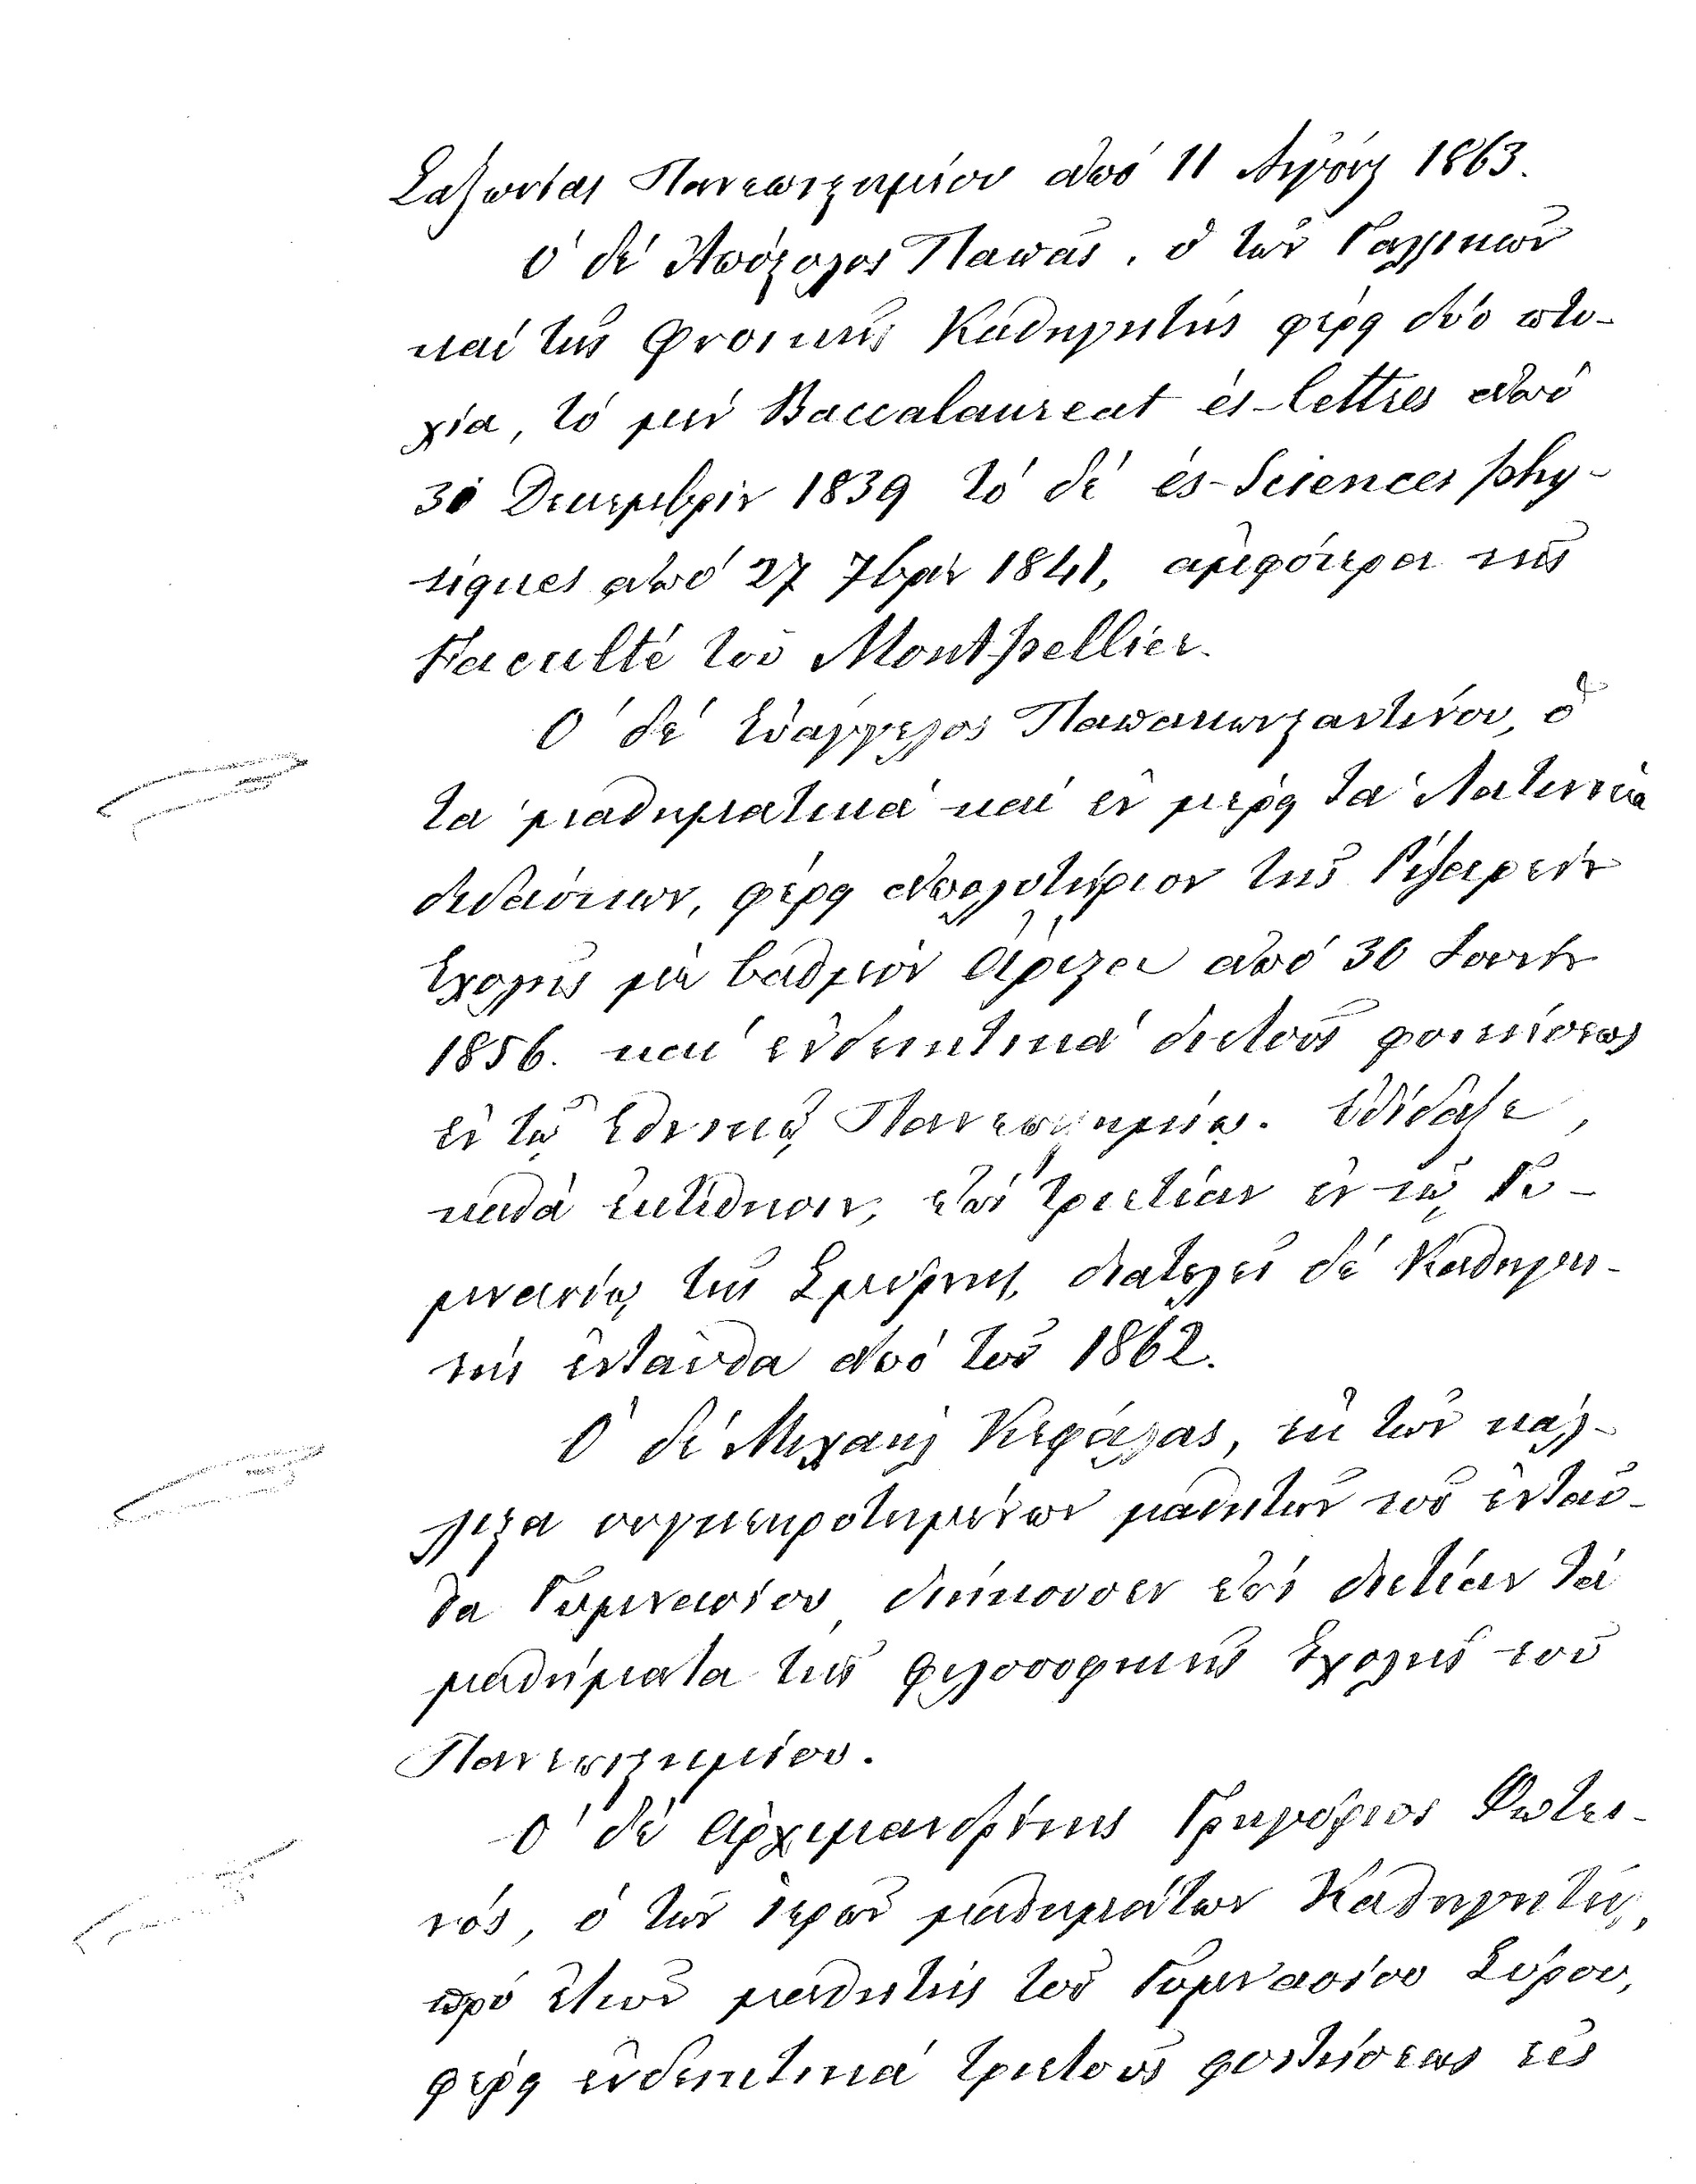 Σαξωνίας Πανεπιστημίου ἀπὸ 11 Αὐγούς 1863.
Ὁ δὲ Ἀπόστολος Παπᾶς, ὁ τῶν Γαλλικῶν
καὶ τῆς Φυσικῆς Καθηγητὴς φέρει δύο πτυ-
χία, τὸ μὲν Baccalaureat ès-lettres ἀπὸ
30 Δεκεμβρίυ 1839 τὸ δὲ ès-Sciences phy-
siques ἀπὸ 27 7βρίυ 1841, ἀμφότερα τῆς
Faculté τοῦ Montpellier.
Ὁ δὲ Εὐάγγελος Παπακωνσταντίνου, ὁ
τὰ μαθηματικὰ καὶ ἐν μέρει τὰ Λατινικὰ
διδάσκων, φέρει ἀπολυτήριον τῆς Ῥιζαρείυ
Σχολῆς μὲ βαθμὸν ἄριστα ἀπὸ 30 Ἰουνίυ
1856. καὶ ἐνδεικτικὰ διετοῦς φοιτήσεως
ἐν τῷ Ἐθνικῷ Πανεπιστημίῳ. Ἐδίδαξε,
καθὰ ἐκτίθησιν, ἐπὶ τριετίαν ἐν τῷ Γυ-
μνασίῳ τῆς Σμύρνης, διατελεῖ δὲ Καθηγη-
τὴς ἐνταῦθα ἀπὸ τοῦ 1862.
Ὁ δὲ Μιχαὴλ Κεφάλας, ἐκ τῶν κάλ-
λιστα συγκεκροτημένων μαθητῶν τοῦ ἐνταῦ-
θα Γυμνασίου, διήκουσεν ἐπὶ διετίαν τὰ
μαθήματα τῆς Φιλοσοφικῆς Σχολῆς τοῦ
Πανεπιστημίου.
Ὁ δὲ Ἀρχιμανδρίτης Γρηγόριος Φωτει-
νός, ὁ τῶν ἱερῶν μαθημάτων Καθηγητής,
πρὸ ἐτῶν μαθητὴς τοῦ Γυμνασίου Σύρου,
φέρει ἐνδεικτικὰ τριετοῦς φοιτήσεως εἰς